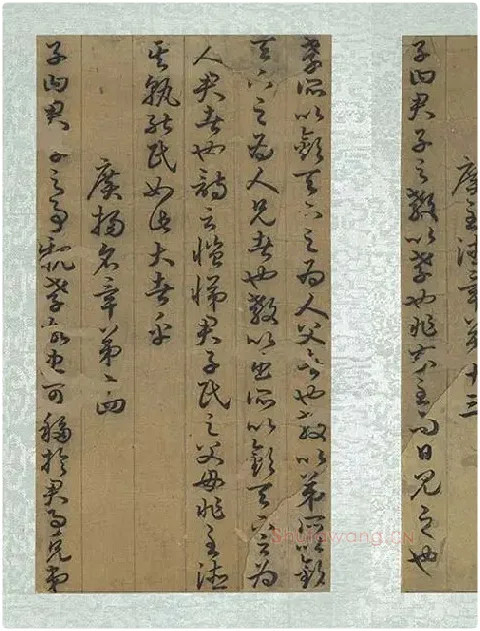 廣至德章第十三
子曰君子之教以孝也非家至而日見之也
孝所以敬天下之為人父者也教以弟所以敬
天下之為人兄者也教以臣所以敬天下之為
人君者也詩云愷悌君子民之父母非至德
其孰能民如此大者乎
廣揚名章第十四
子曰君子之事親孝故忠可移於君事兄弟